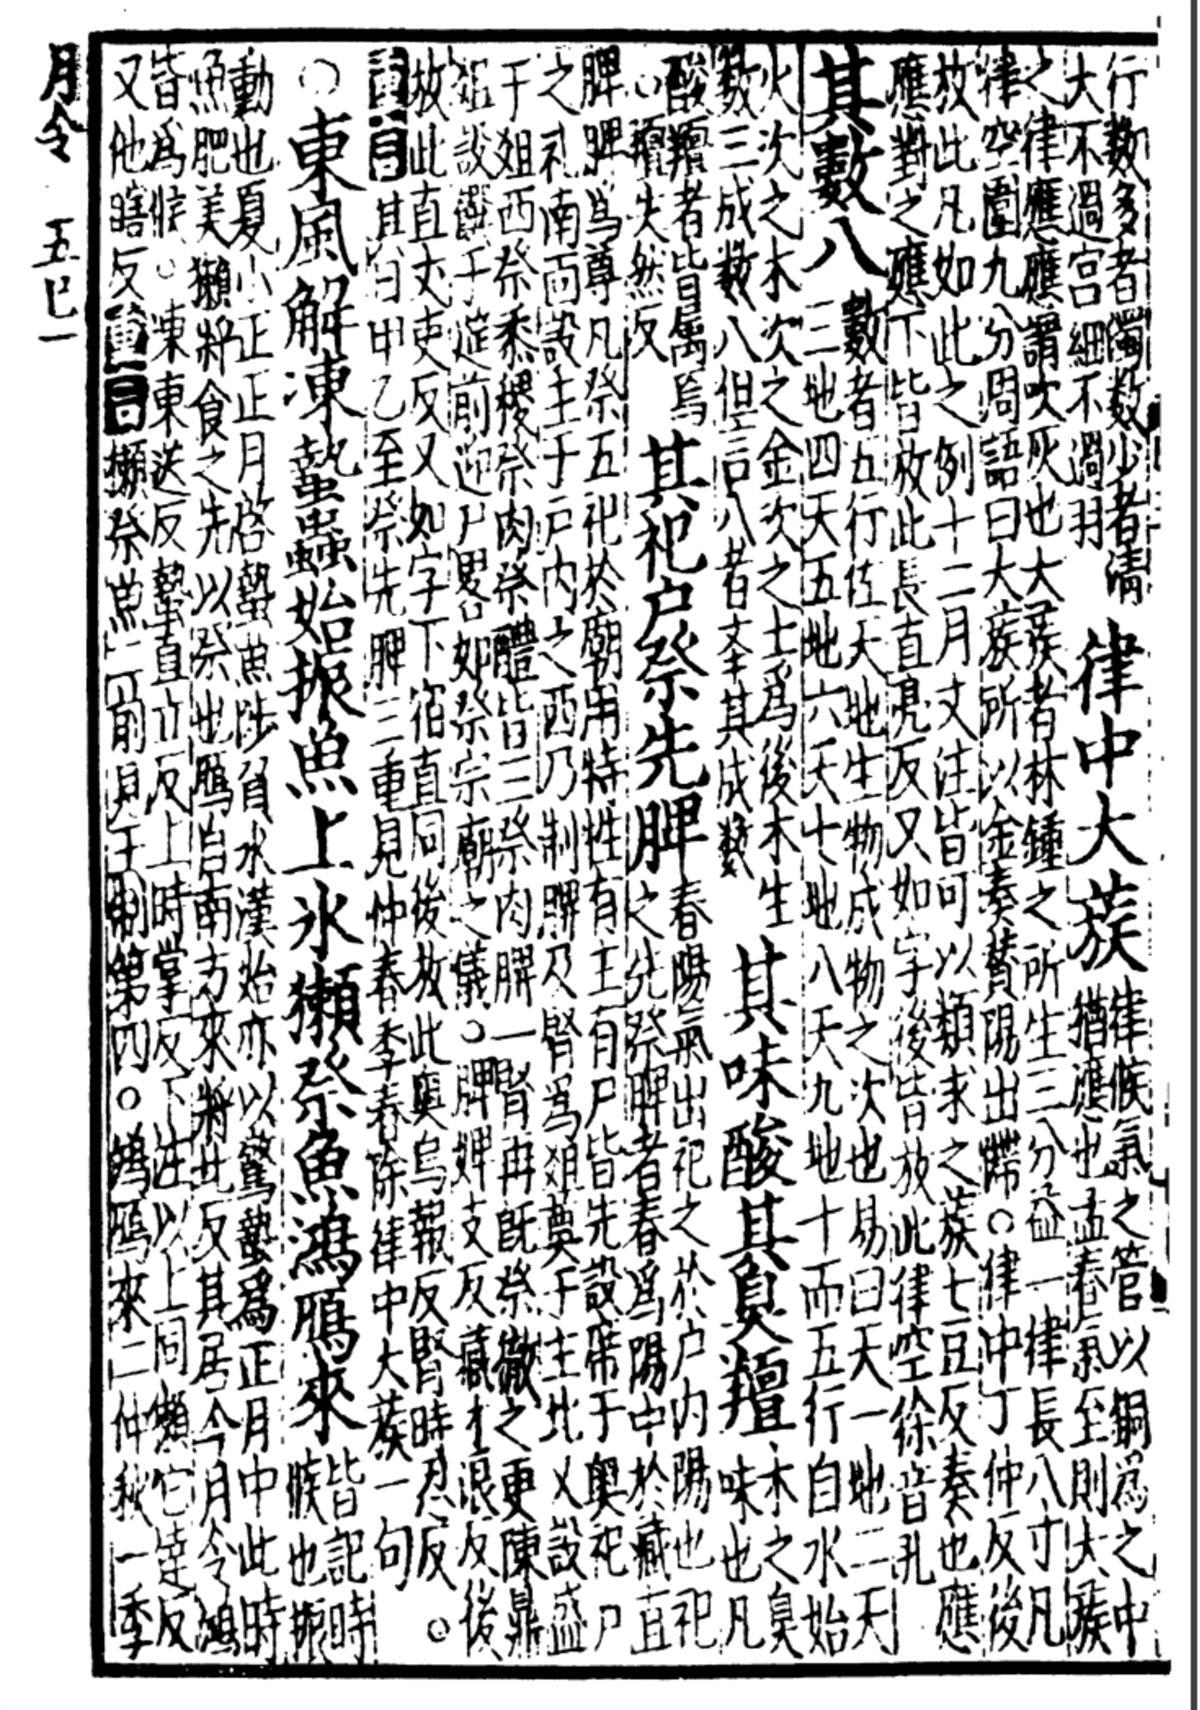 行數多者濁數少者清
大不過宮細不過羽
律中大蔟
律候氣之管以銅爲之中
猶應也孟春氣至則大蔟
之律應應謂吹灰也大蔟者林鍾之所生三分益一律長八寸凡
律空圍九分周語曰大蔟所以金奏贊陽出滯○律中丁仲反後
放此凡如此之例十二月文注皆可以類求之蔟七豆反奏也應
應對之應下皆放此長直亮反又如字後皆放此律空徐音孔
其數八
數者五行佐天地生物成物之次也易曰天一地二天
三地四天五地六天七地八天九地十而五行自水始
火次之木次之金次之土爲後木生
數三成數八但言八者舉其成數
其味酸其臭羶
木之臭
味也凡
酸羶者皆屬焉
○羶失然反
其祀户祭先脾
春陽氣出祀之於户内陽也祀
之先祭脾者春爲陽中於藏直
脾脾爲尊凡祭五祀於廟用特牲有主有尸皆先設席于奧祀户
之礼南面設主于户内之西乃制脾及腎爲俎奠于主北又設盛
于俎西祭黍稷祭肉祭醴皆三祭肉脾一腎再既祭徹之更陳鼎
俎設饌于筵前迎尸畧如祭宗廟之儀○脾婢支反藏才浪反後
放此直丈吏反又如字下值直同後放此奧烏報反腎時忍反○
重言其日甲乙至祭先脾三重見仲春季春除律中大蔟一句
○東風解凍蟄蟲始振魚上氷獺祭魚鴻鴈來
皆記時
候也振
動也夏小正正月啓蟄魚陟負氷漢始亦以驚蟄爲正月中此時
魚肥美獺將食之先以祭也鴈自南方來將北反其居今月令鴻
皆爲候○凍東送反蟄直立反上時掌反下注以上同獺它達反
又他瞎反重言獺祭魚二前見王制第四○鴻鴈來二仲秋一季
月令 五巳一